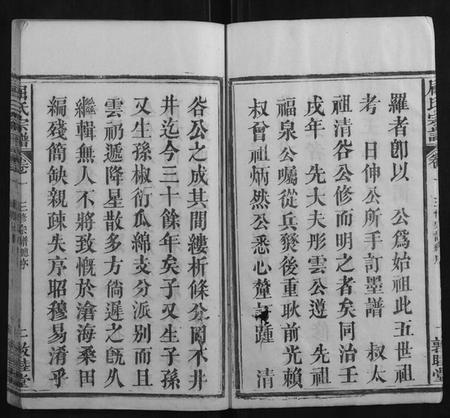 羅者卽以　公爲始祖此五世祖
考　日伸公所手訂墨譜　叔太
祖清谷公修而明之者矣同治壬
戌年　先大夫彤雲公遵　先祖
福泉公囑從兵燹後重耿前光賴
叔會祖炳然公悉心釐訂踵　清
谷公之成其間縷析條分罔不井
井迄今三十餘年矣子又生子孫
又生孫椒衍瓜綿支分派别而且
雲礽遞降星散多方倘遲之旣久
繼輯無人不將致慨於滄海桑田
編殘簡缺親疎失序昭穆易淆乎
周氏宗譜 卷
三修宗譜總序
一 敦睦堂
周氏宗譜 卷
一 敦睦堂